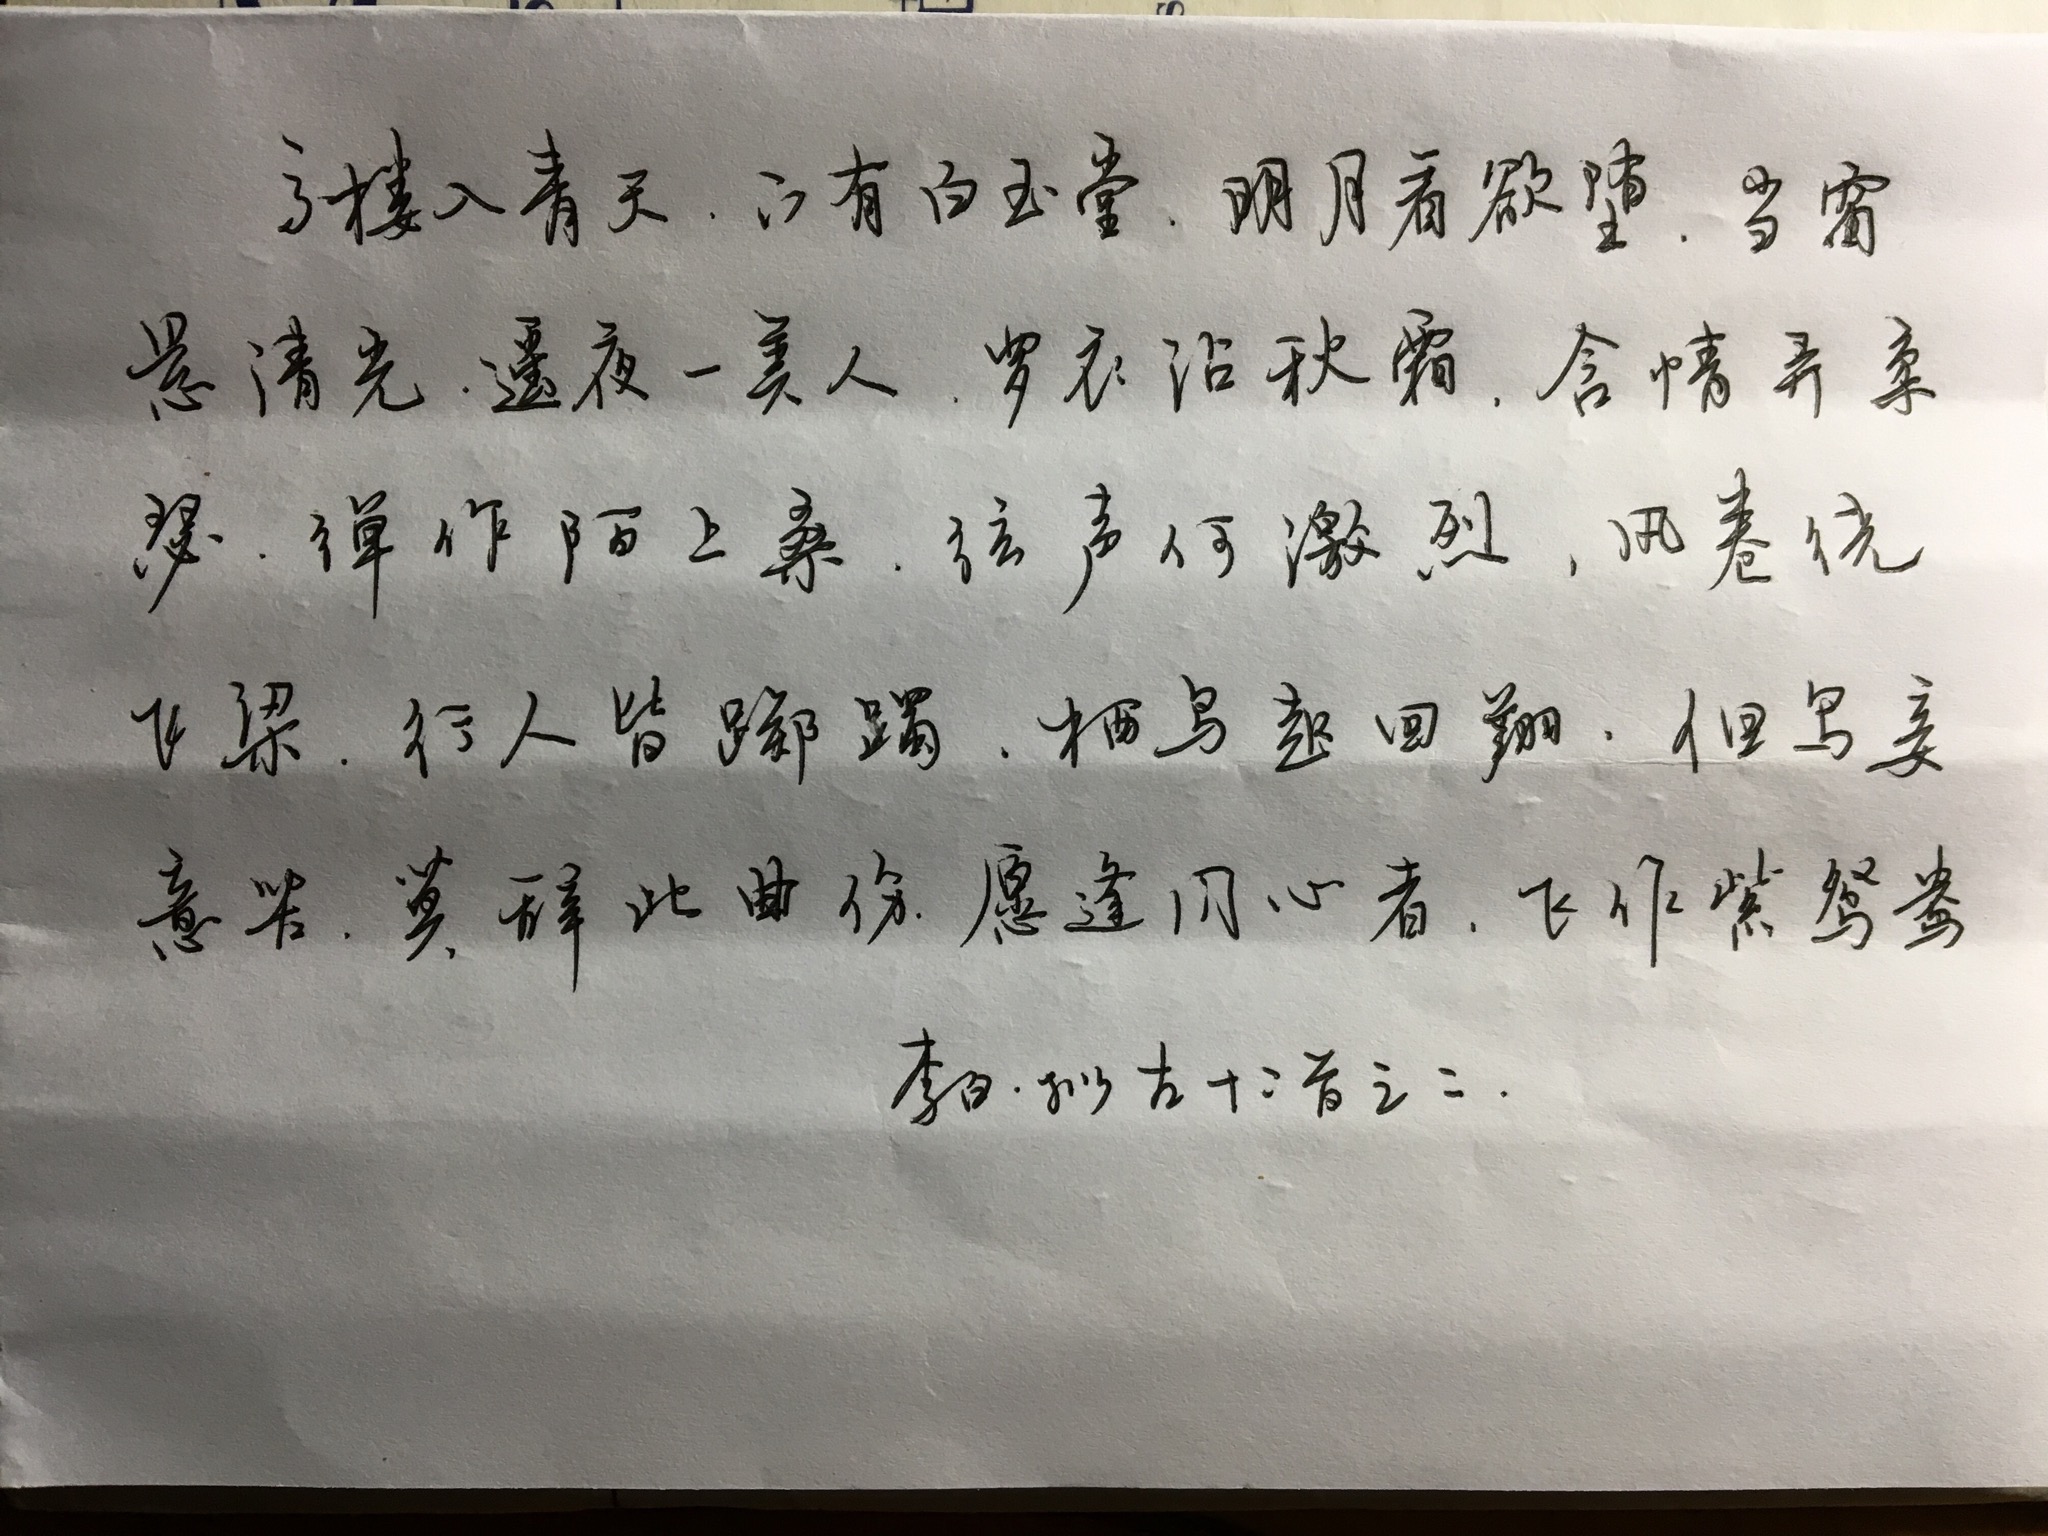 高楼入青天.下有白玉堂.明月看欲堕.当窗
悬清光.遥夜一美人.罗衣沾秋霜.含情弄柔
瑟.弹作陌上桑.弦声何激烈,风卷绕
飞梁.行人皆踯躅.栖鸟起回翔.但写妾
意苦.莫辞此曲伤.愿逢同心者.飞作紫鸳鸯
李白.拟古十二首之二.